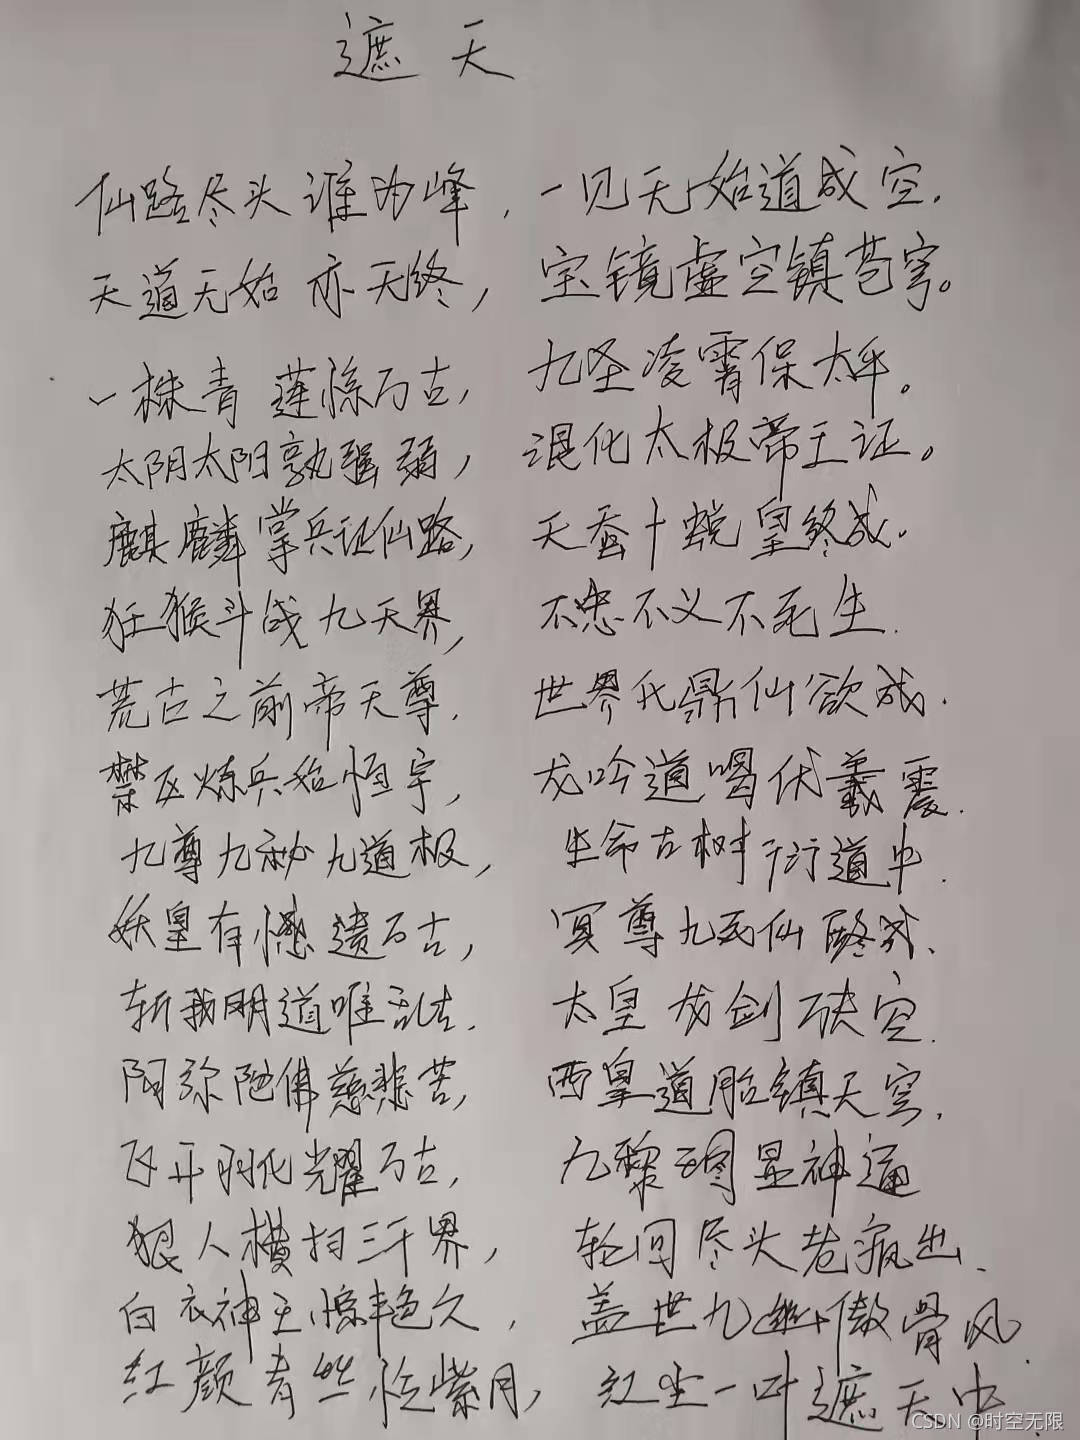 遮天
仙路尽头谁为峰，一见无始道成空.
天道无始亦无终，宝镜虚空镇苍穹。
一株青莲惊万古，九圣凌霄保太平。
太阴太阳孰强弱，混化太极帝王证。
麒麟掌兵证仙路，天蚕十蜕皇终成.
狂猴斗战九天界，不忠不义不死生.
荒古之前帝天尊.世界氏鼎仙欲成.
禁区炼兵始恒宇，龙吟道喝伏羲震.
九尊九秘九道极，生命古树衍道中.
妖皇有憾遗万古，冥尊九死仙路成.
斩我明道唯乱古.太皇龙剑破空.
阿弥陀佛慈悲苦，西皇道胎镇天穹.
飞升羽化光耀万古，九黎图显神通
狠人横扫三千界，轮回尽头老疯出.
白衣神王惊艳久，盖世九幽傲骨风.
红颜青丝忆紫月，红尘一叶遮天中.
CSDN @时空无限